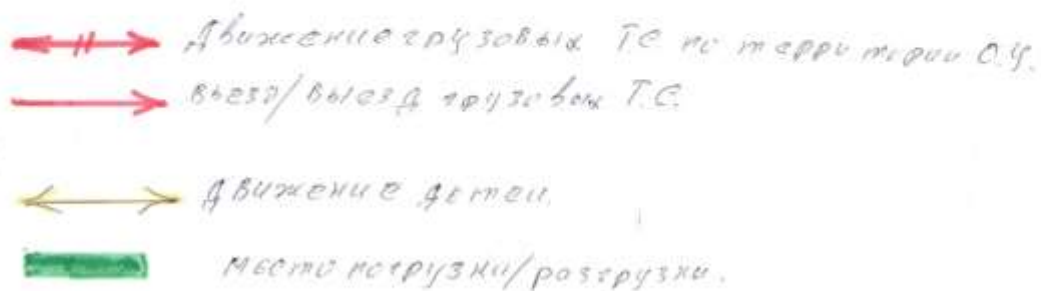 Движение грузовых ТС по территории О.У.
въезд/выезд грузовых Т.С.
движение детей.
место погрузки/разгрузки.